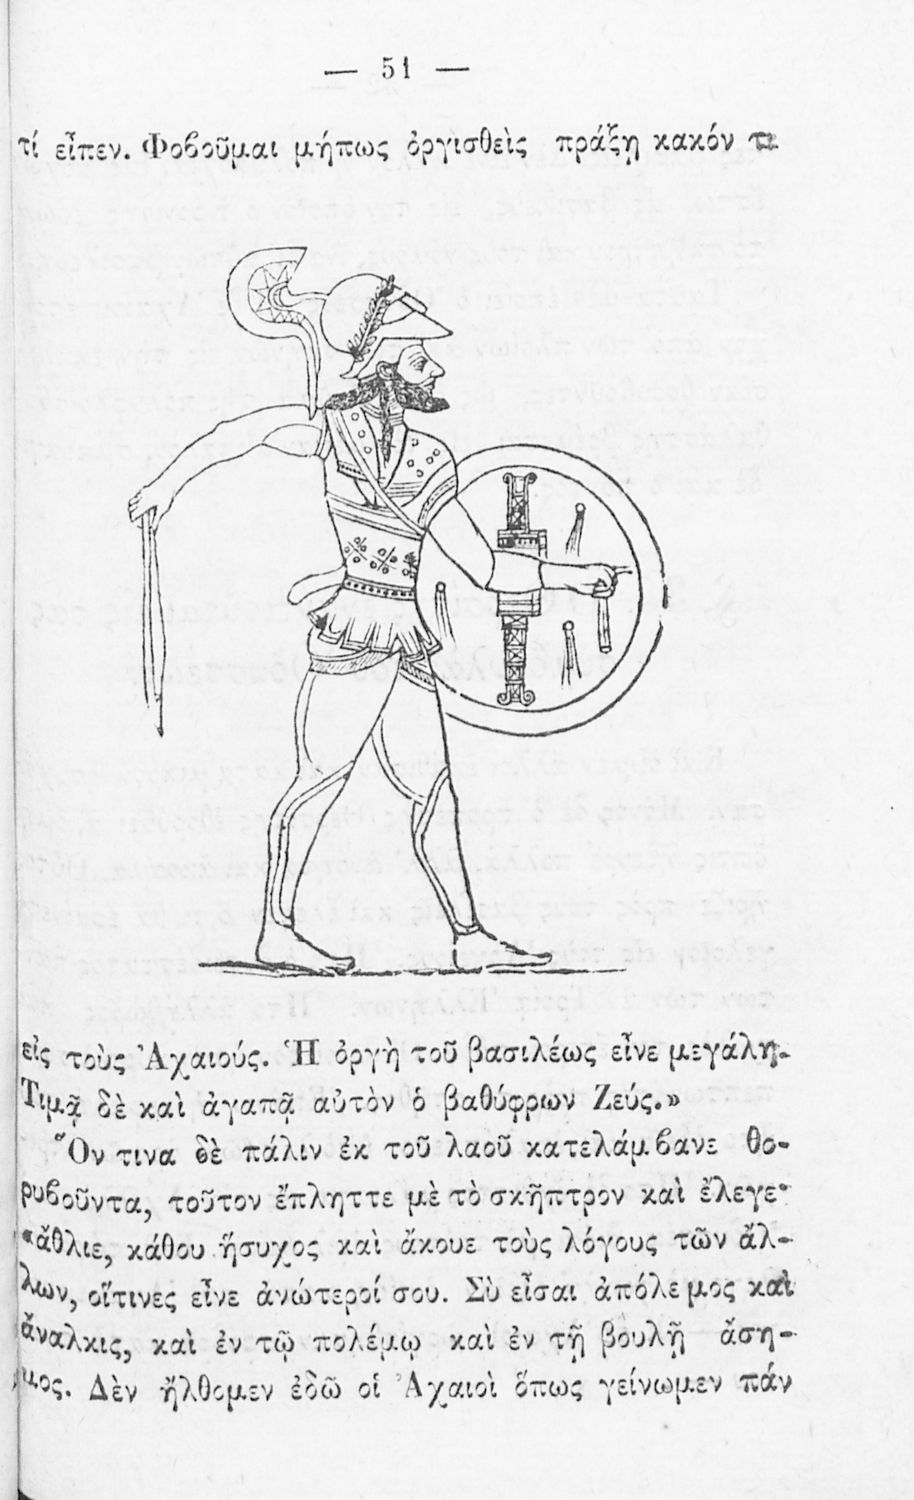 — 51 —
τί εἶπεν. Φοβοῦμαι μήπως ὀργισθεὶς πράξῃ κακόν τι
εἰς τοὺς Ἀχαιούς. Ἡ ὀργὴ τοῦ βασιλέως εἶνε μεγάλη.
Τιμᾷ δὲ καὶ ἀγαπᾷ αὐτὸν ὁ βαθύφρων Ζεύς.»
Ὅν τινα δὲ πάλιν ἐκ τοῦ λαοῦ κατελάμβανε θο-
ρυβοῦντα, τοῦτον ἔπληττε μὲ τὸ σκῆπτρον καὶ ἔλεγε·
«ἄθλιε, κάθου ἥσυχος καὶ ἄκουε τοὺς λόγους τῶν ἄλ-
λων, οἵτινες εἶνε ἀνώτεροί σου. Σὺ εἶσαι ἀπόλεμος καὶ
ἄναλκις, καὶ ἐν τῷ πολέμῳ καὶ ἐν τῇ βουλῇ ἄση-
μος. Δὲν ἤλθομεν ἐδῶ οἱ Ἀχαιοὶ ὅπως γείνωμεν πάν